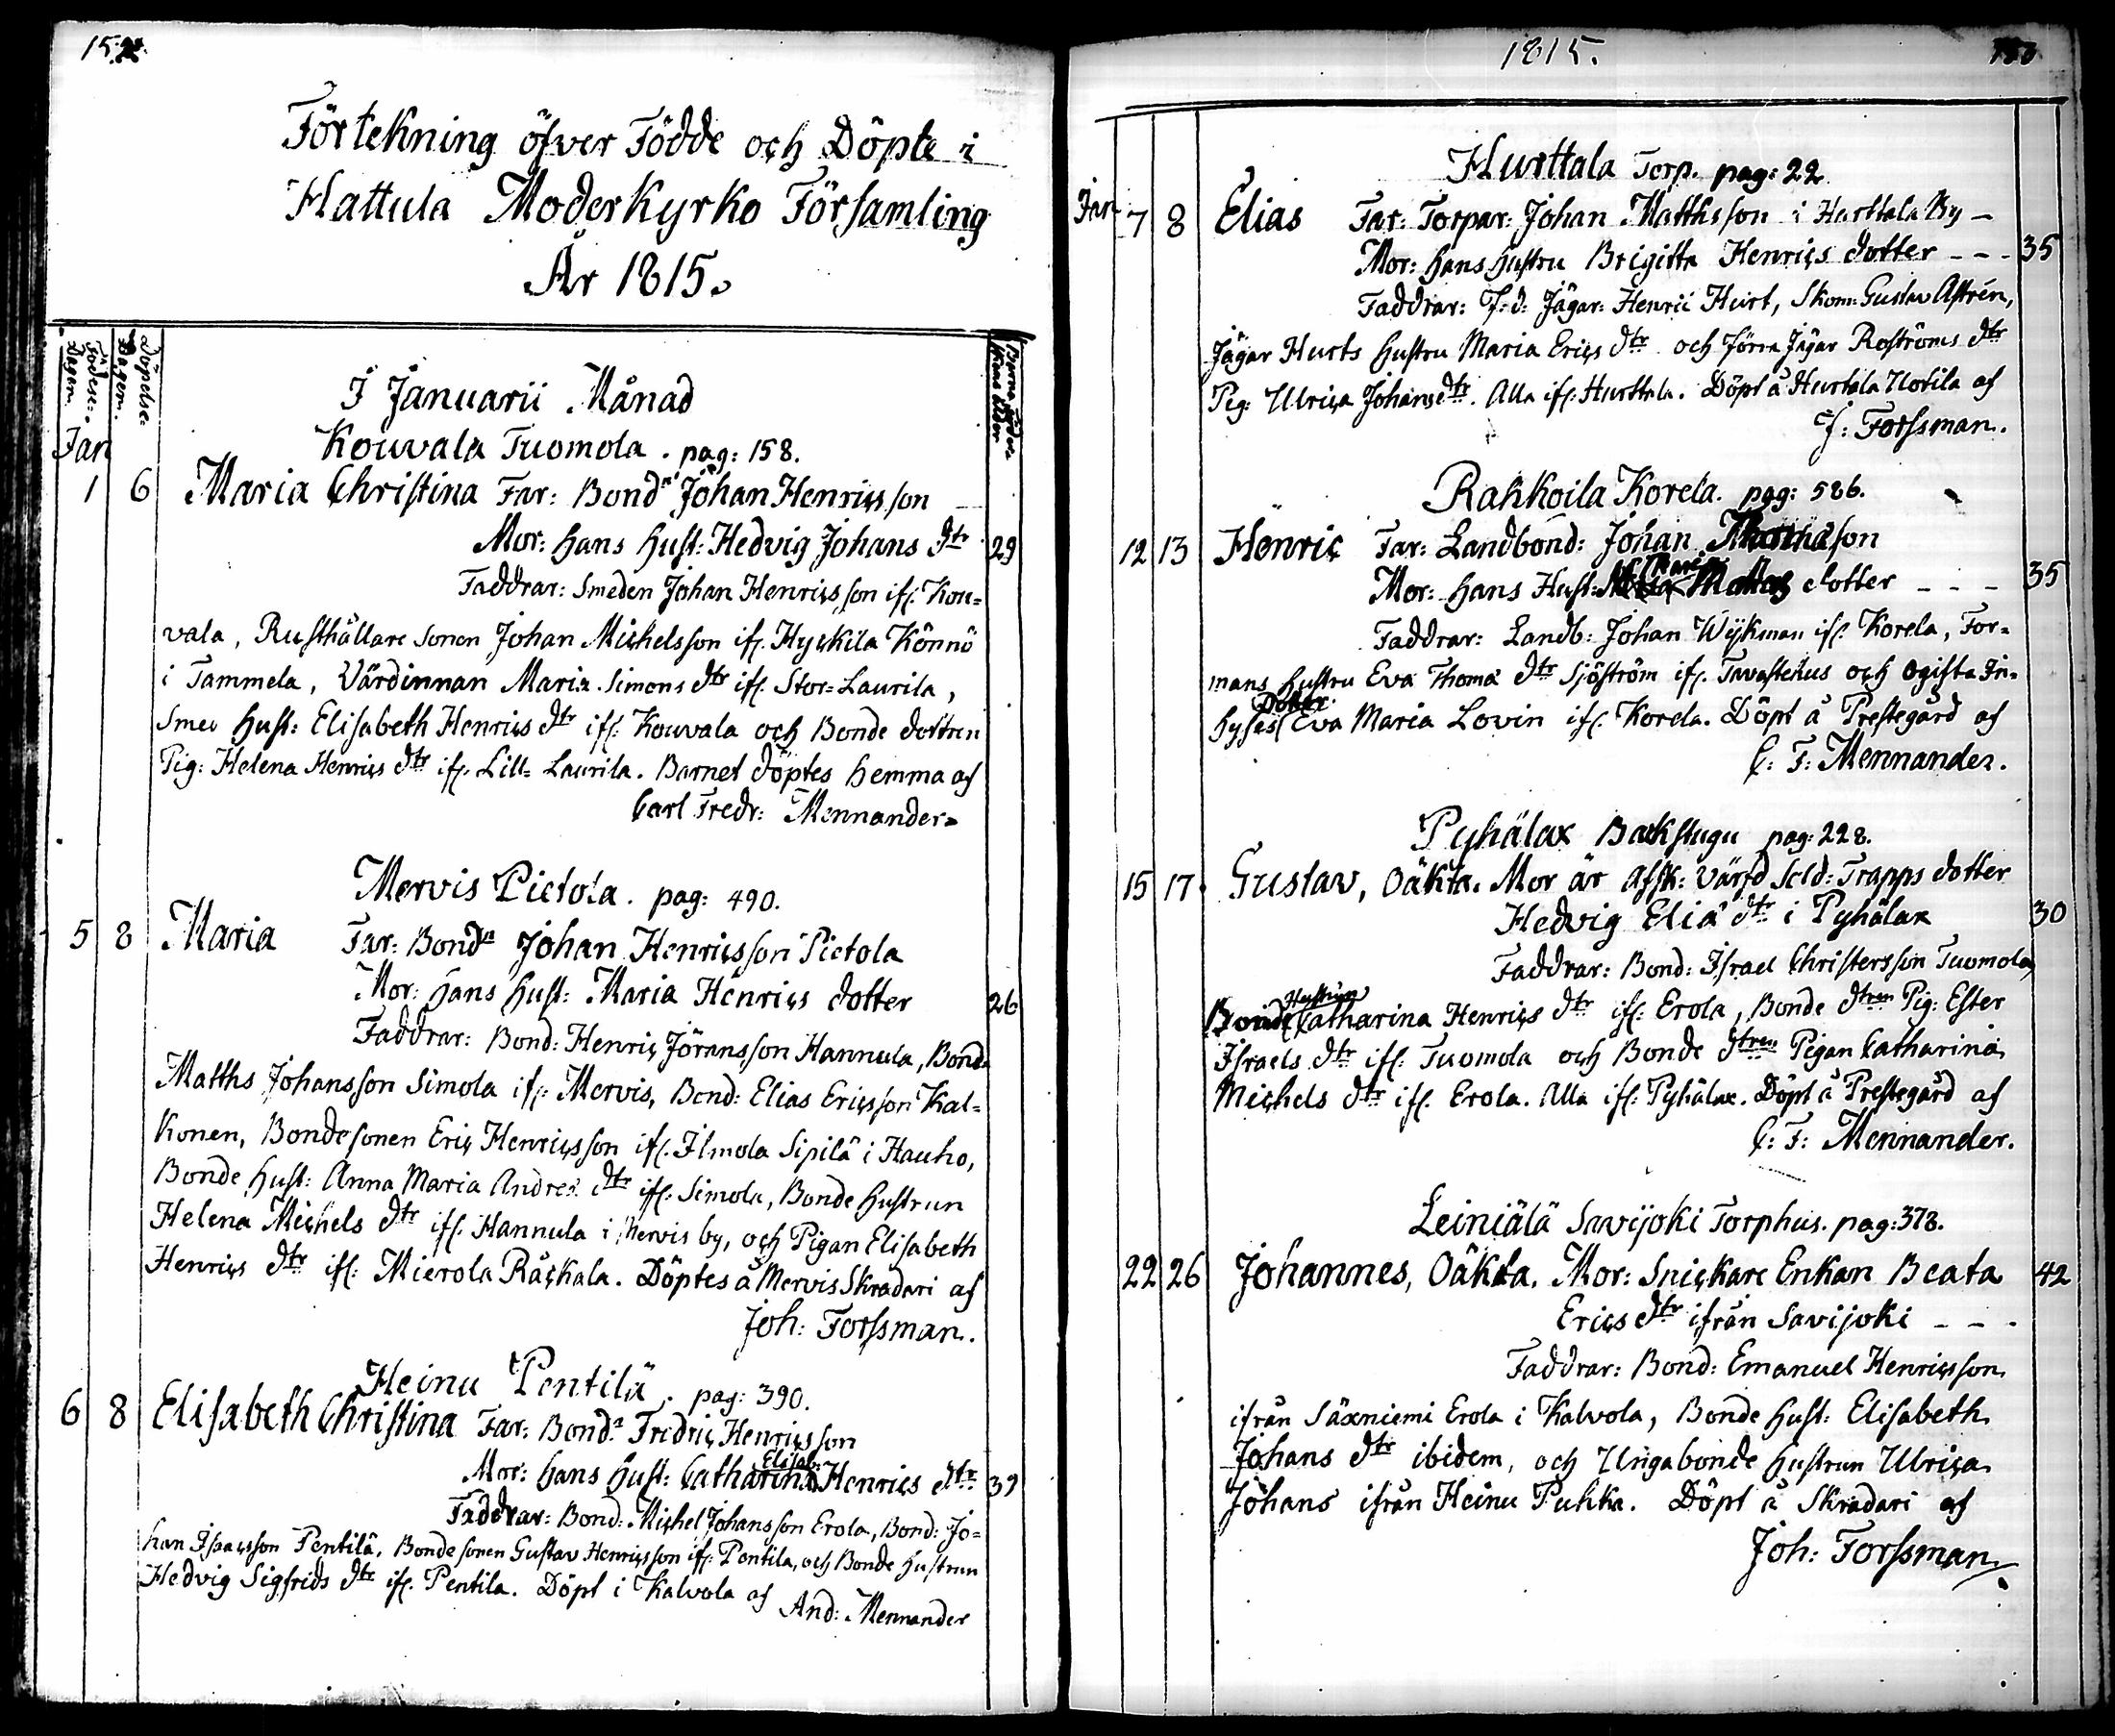 152.
Förtekning öfver Födde och Döpte i
Hattula Moderkyrko Församling
År 1815.
Födelse: Dagen.
Döpelse Dagen.
I Januarii Månad
Jan
Kouvala Tuomola. pag: 158.
1 6 Maria Christina Far: Bondn Johan Henricsson
Mor: hans hust: Hedvig Johans dtr 29
Faddrar: Smeden Johan Henricsson ifr: Kou=
vala, Rusthållare sonen Johan Michelsson ifr: Hyckila Könnö
i Tammela, Värdinnan Maria Simons dtr ifr: Stor=Laurila,
Smed hust: Elisabeth Henrics dtr ifr: Kouvala och Bonde dottren
Pig: Helena Henrics dtr ifr: Lill= Laurila. Barnet döptes hemma af
Carl Fredr: Mennander=
Mervis Pietola. pag: 490.
5 8 Maria Far: Bondn Johan Henricsson Pietola
Mor: hans hust: Maria Henrics dotter 26
Faddrar: Bond: Henric Göransson Hannula, Bond:
Matths Johansson Simola ifr: Mervis, Bond: Elias Ericsson Kal=
konen, Bondesonen Eric Henricsson ifr: Ilmola Sipilä i Hauho,
Bonde hust: Anna Maria Andres dtr ifr: Simola, Bonde hustrun
Helena Michels dtr ifr: Hannula i Mervis by, och Pigan Elisabeth
Henrics dtr ifr: Mierola Råckala. Döptes å Mervis Skradari af
Joh: Forssman.
Heinu Pentilä. pag: 390.
6 8 Elisabeth Christina Far: Bondn Fredric Henricsson
Elisab:
Mor: hans hust: Catharina Henrics dtr 39
Faddrar: Bond: Michel Johansson Erola, Bond: Jo=
han Isaacsson Pentilä, Bonde sonen Gustav Henricsson ifr: Pentila, och Bonde hustrun
Hedvig Sigfrids dtr ifr: Pentila. Döpt i Kalvola af
And: Mennander
1815. 153
Hurttala Torp. pag: 22
Jan 7 8 Elias Far: Torpar: Johan Matthsson i Hurttala By –
Mor: hans hustru Brigitta Henrics dotter - - - 35
Faddrar: F. d. Jägar: Henric Hurt, Skom: Gustav Astrén,
Jägar Hurts hustru Maria Erics dtr och förra Jägar Roströms dtr
Pig: Ulrica Johans dtr. Alla ifr: Hurttala. Döpt å Hurtala Uotila af
J: Forssman.
Rahkoila Korela. pag: 586.
12 13 Henric Far: Landbond: Johan son
Mor: hans Hust: Mattas dotter - - - 35
Faddrar: Landb: Johan Wijkman ifr: Korela, For=
mans hustru Eva Thomæ dtr Sjöström ifr: Tavastehus och ogifta In=
Dotter
hyses Eva Maria Lovin ifr: Korela. Döpt å Prestegård af
C: F: Mennander.
Pyhälax Backstugu pag: 228.
15 17 Gustav, Oäkta. Mor är Afsk: Värfd Sold: Trapps dotter
Hedvig Eliæ dtr i Pyhälax 30
Faddrar: Bond: Israel Christersson Tuomola,
Hustrun
Bonde Catharina Henrics dtr ifr: Erola, Bonde dtren Pig: Ester
Israels dtr ifr: Tuomola och Bonde dtren Pigan Catharina
Michels dtr ifr: Erola. Alla ifr: Pyhälax. Döpt å Prestegård af
C: F: Mennander.
Leiniälä Savijoki Torphus. pag: 378.
22 26 Johannes, Oäkta. Mor: Snickare Enkan Beata 42
Erics dtr ifrån Savijoki - - -
Faddrar: Bond: Emanuel Henricsson
ifrån Säxniemi Erola i Kalvola, Bonde hust: Elisabeth
Johans dtr ibidem, och Ungabonde hustrun Ulrica
Johans ifrån Heinu Pukka. Döpt å Skradari af
Joh: Forssman